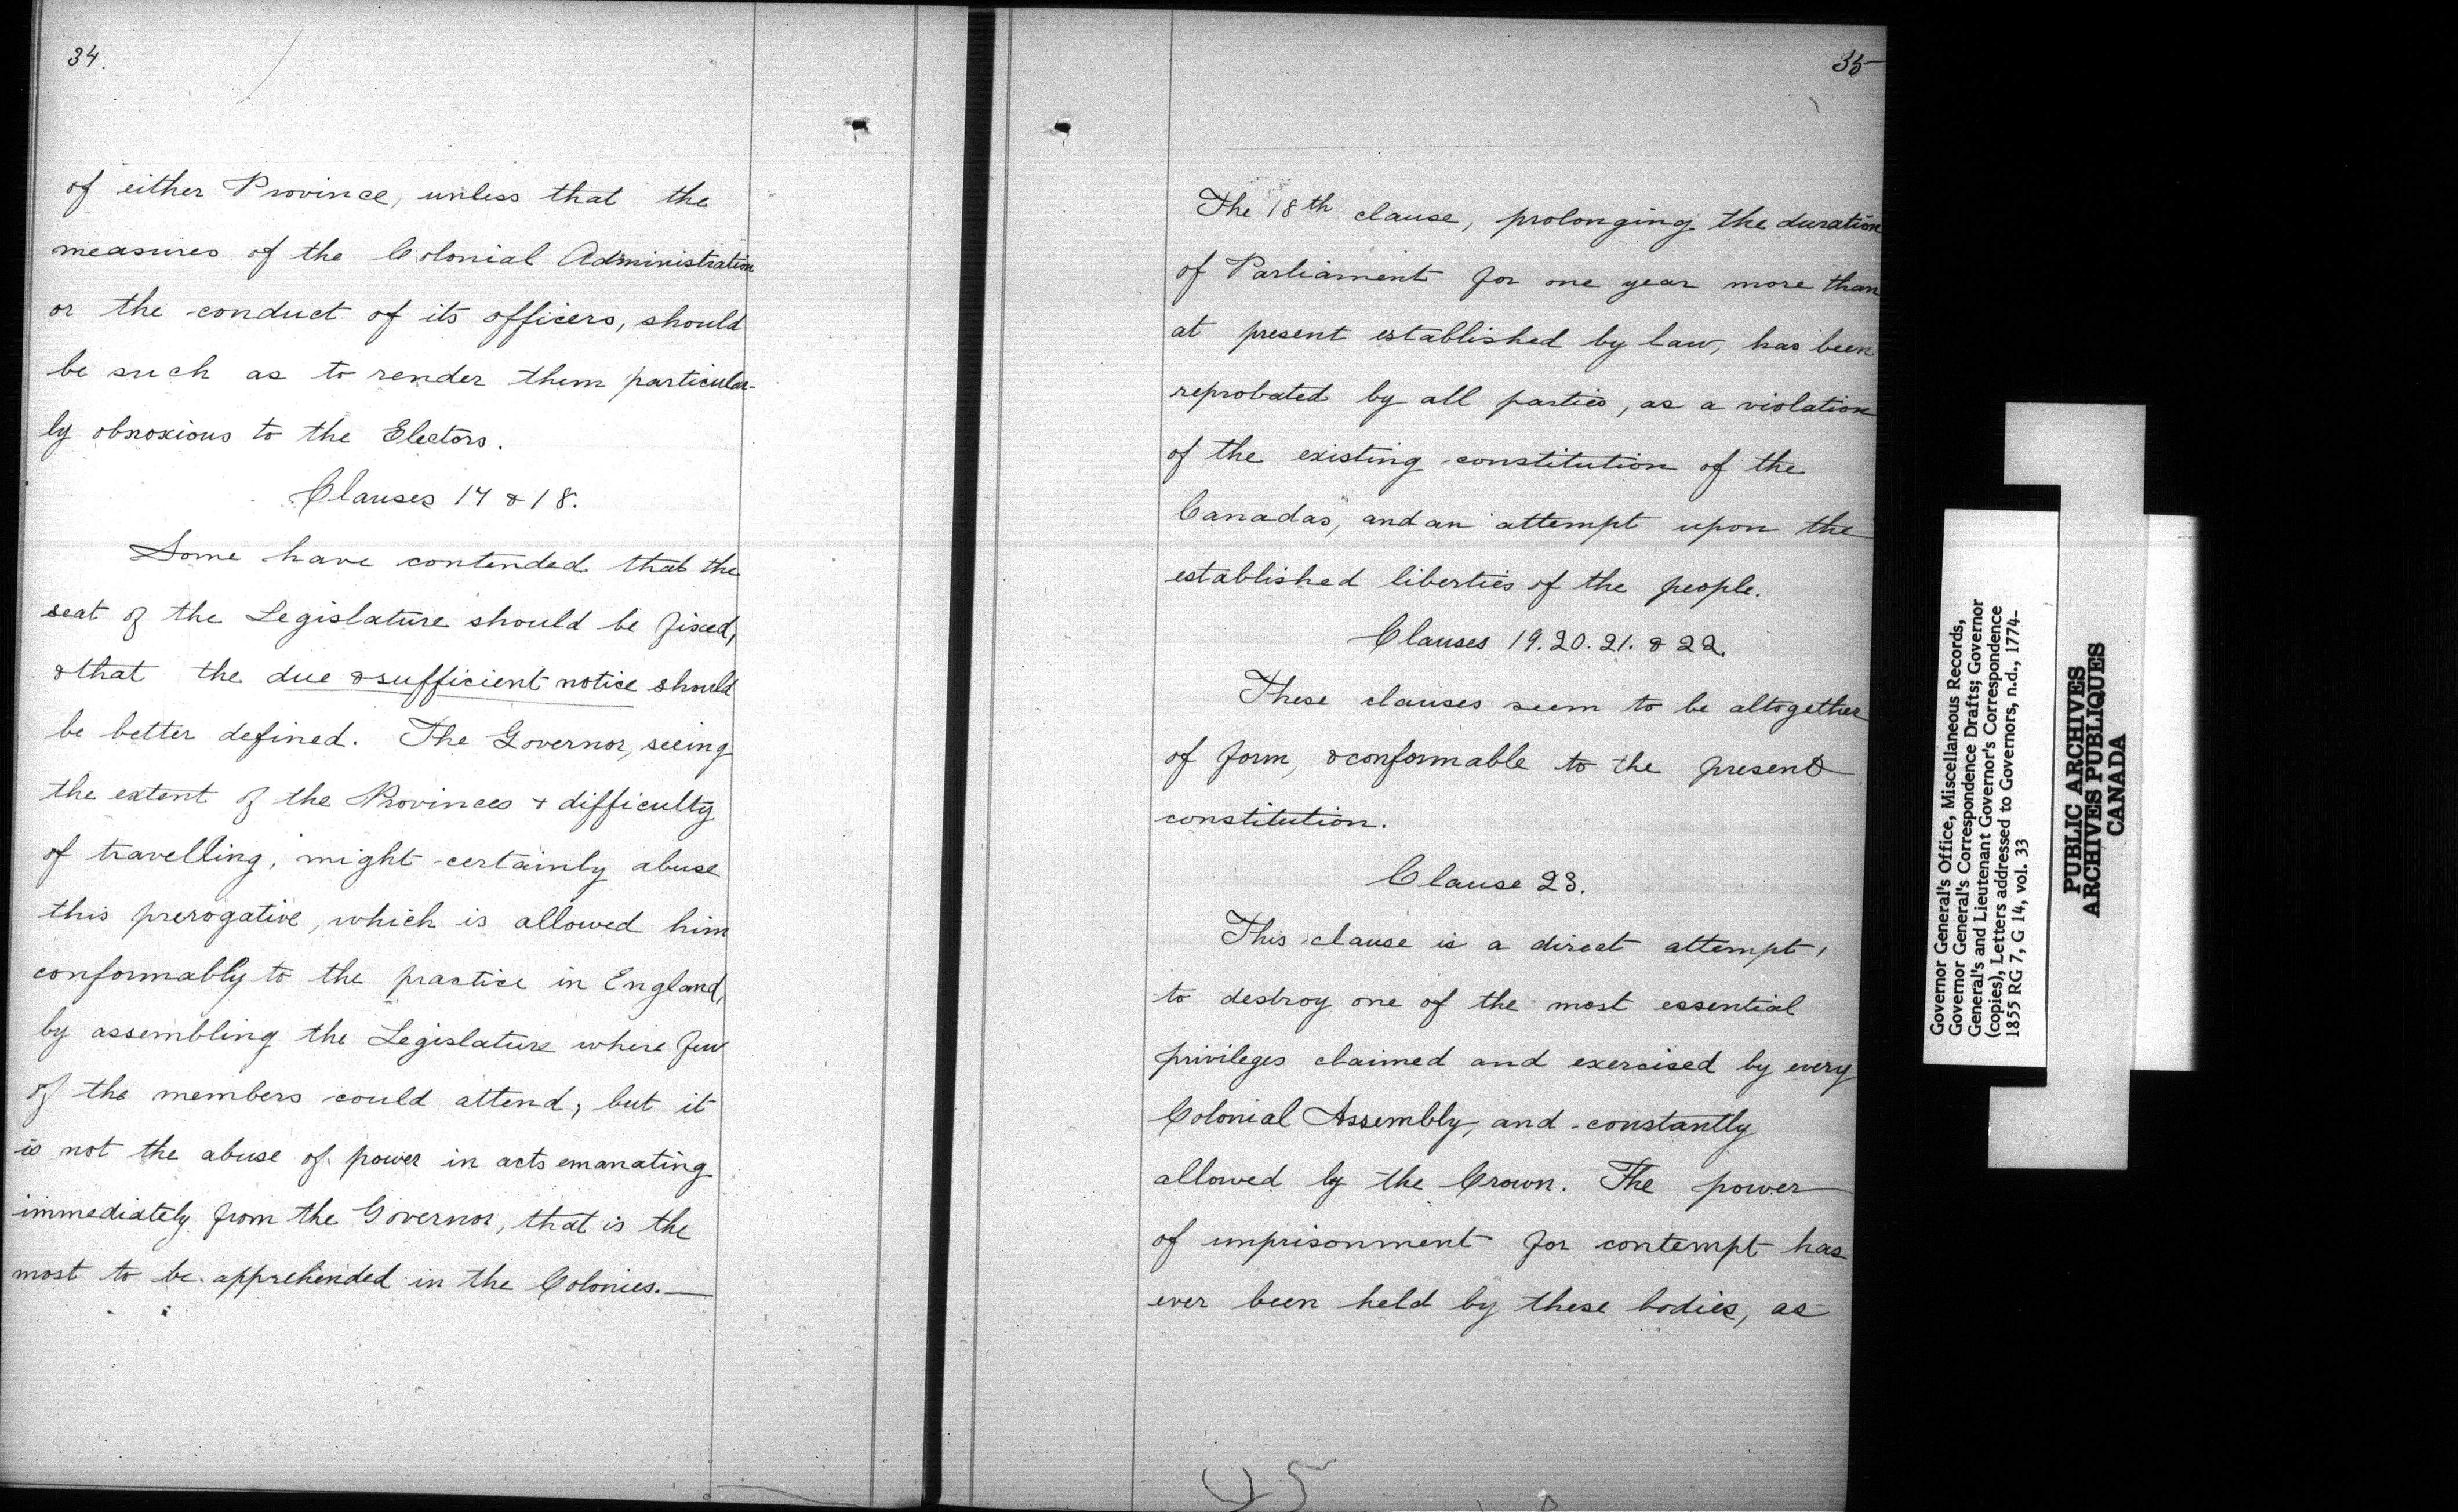 34.
of either Province, unless that the
measures of the Colonial Administration
or the conduct of its officers, should
be such as to render them particular-
ly obnoxious to the Electors.
Clauses 17 & 18.
Some have contended that the
seat of the Legislature should be fixed,
& that the due & sufficient notice should
be better defined. The Governor, seeing
the extent of the Provinces & difficulty
of travelling, might certainly abuse
this prerogative, which is allowed him
conformably to the practice in England,
by assembling the Legislature where few
of the members could attend, but it
is not the abuse of power in acts emanating
immediately from the Governor, that is the
most to be apprehended in the Colonies.—
35
The 18th clause, prolonging the duration
of Parliament for one year more than
at present established by law, has been
reprobated by all parties, as a violation
of the existing constitution of the
Canadas, and an attempt upon the
established liberties of the people.
Clauses 19. 20. 21. & 22.
These clauses seem to be altogether
of form, & conformable to the present
constitution.
Clause 23.
This clause is a direct attempt,
to destroy one of the most essential
privileges claimed and exercised by every
Colonial Assembly, and constantly
allowed by the Crown. The power
of imprisonment for contempt has
ever been held by these bodies, as
Governor General's Office, Miscellaneous Records,
Governor General's Correspondence Drafts; Governor
General's and Lieutenant Governor's Correspondence
(copies), Letters addressed to Governors, n.d., 1774-
1855 RG 7, G 14, vol. 33
PUBLIC ARCHIVES
ARCHIVES PUBLIQUES
CANADA